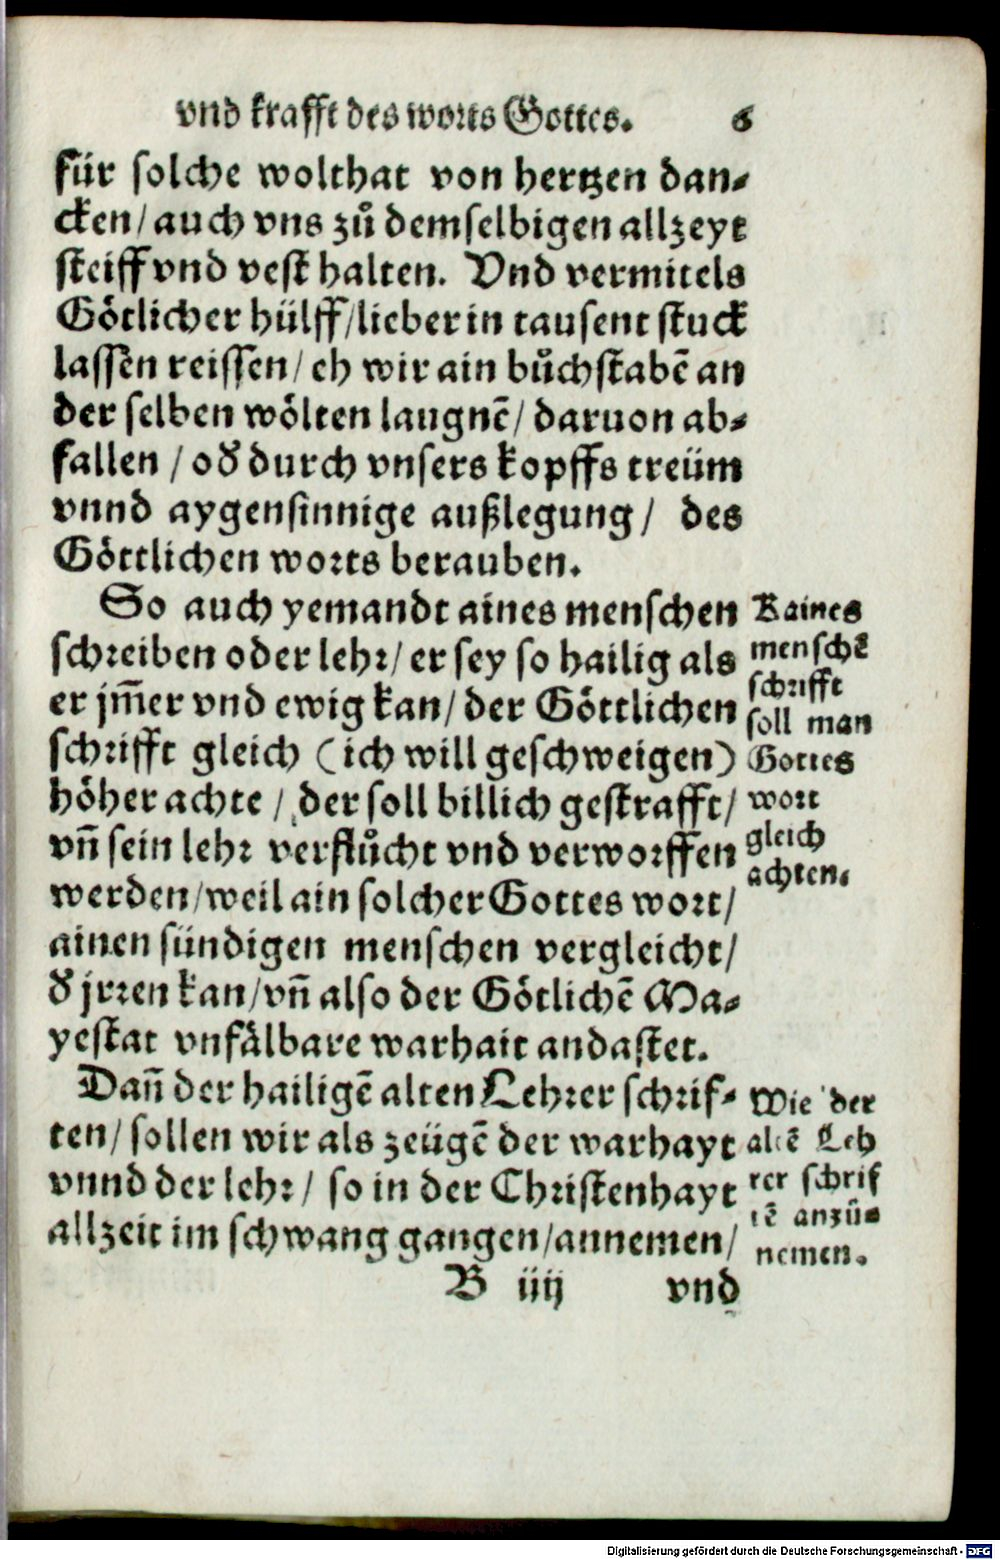 vnd krafft des worts Gottes. 6
für solche wolthat von hertzen dan⸗
cken / auch vns zů demselbigen allzeyt
steiff vnd vest halten. Vnd vermitels
Götlicher hülff / lieber in tausent stuck
lassen reissen / eh wir ain bůchstabẽ an
der selben wölten laugnẽ / daruon ab⸗
fallen / oď durch vnsers kopffs treüm
vnnd aygensinnige außlegung / des
Göttlichen worts berauben.
So auch yemandt aines menschen
schreiben oder lehr / er sey so hailig als
er jm̃er vnd ewig kan / der Göttlichen
schrifft gleich (ich will geschweigen)
höher achte / der soll billich gestrafft /
vñ sein lehr verflůcht vnd verworffen
werden / weil ain solcher Gottes wort /
ainen sündigen menschen vergleicht /
ď jrren kan / vñ also der Götlichẽ Ma⸗
yestat vnfälbare warhait andastet.
Kaines
menschẽ
schrifft
soll man
Gottes
wort
gleich
achten.
Dañ der hailigẽ alten Lehrer schrif⸗
ten / sollen wir als zeügẽ der warhayt
vnnd der lehr / so in der Christenhayt
allzeit im schwang gangen / annemen /
Wie der
altẽ Leh
rer schrif
tẽ anzů⸗
nemen.
B iiij vnd
Digitalisierung gefördert durch die Deutsche Forschungsgemeinschaft - DFG